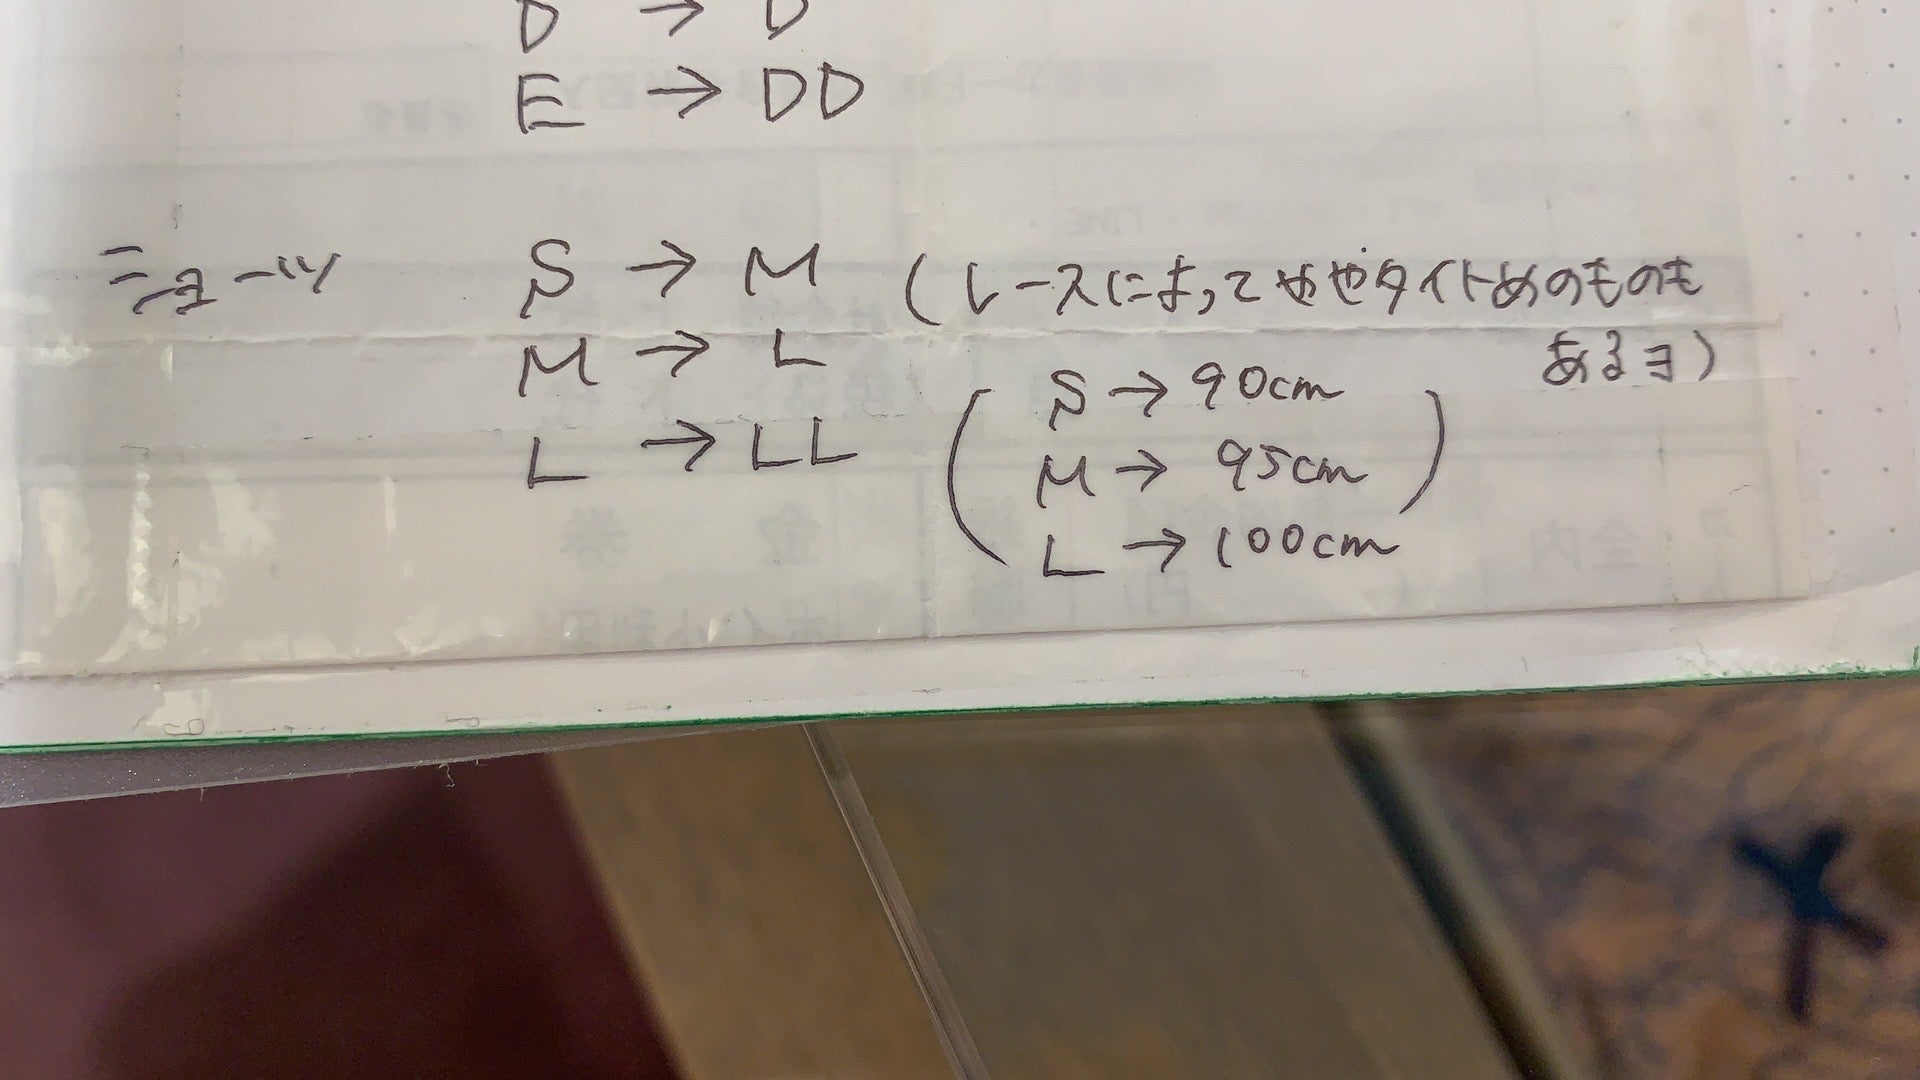 D → D
E → DD
ショーツ S → M (レースによってややタイトめのものも
あるヨ)
M → L
L → LL
(S → 90cm
M → 95cm
L → 100cm)